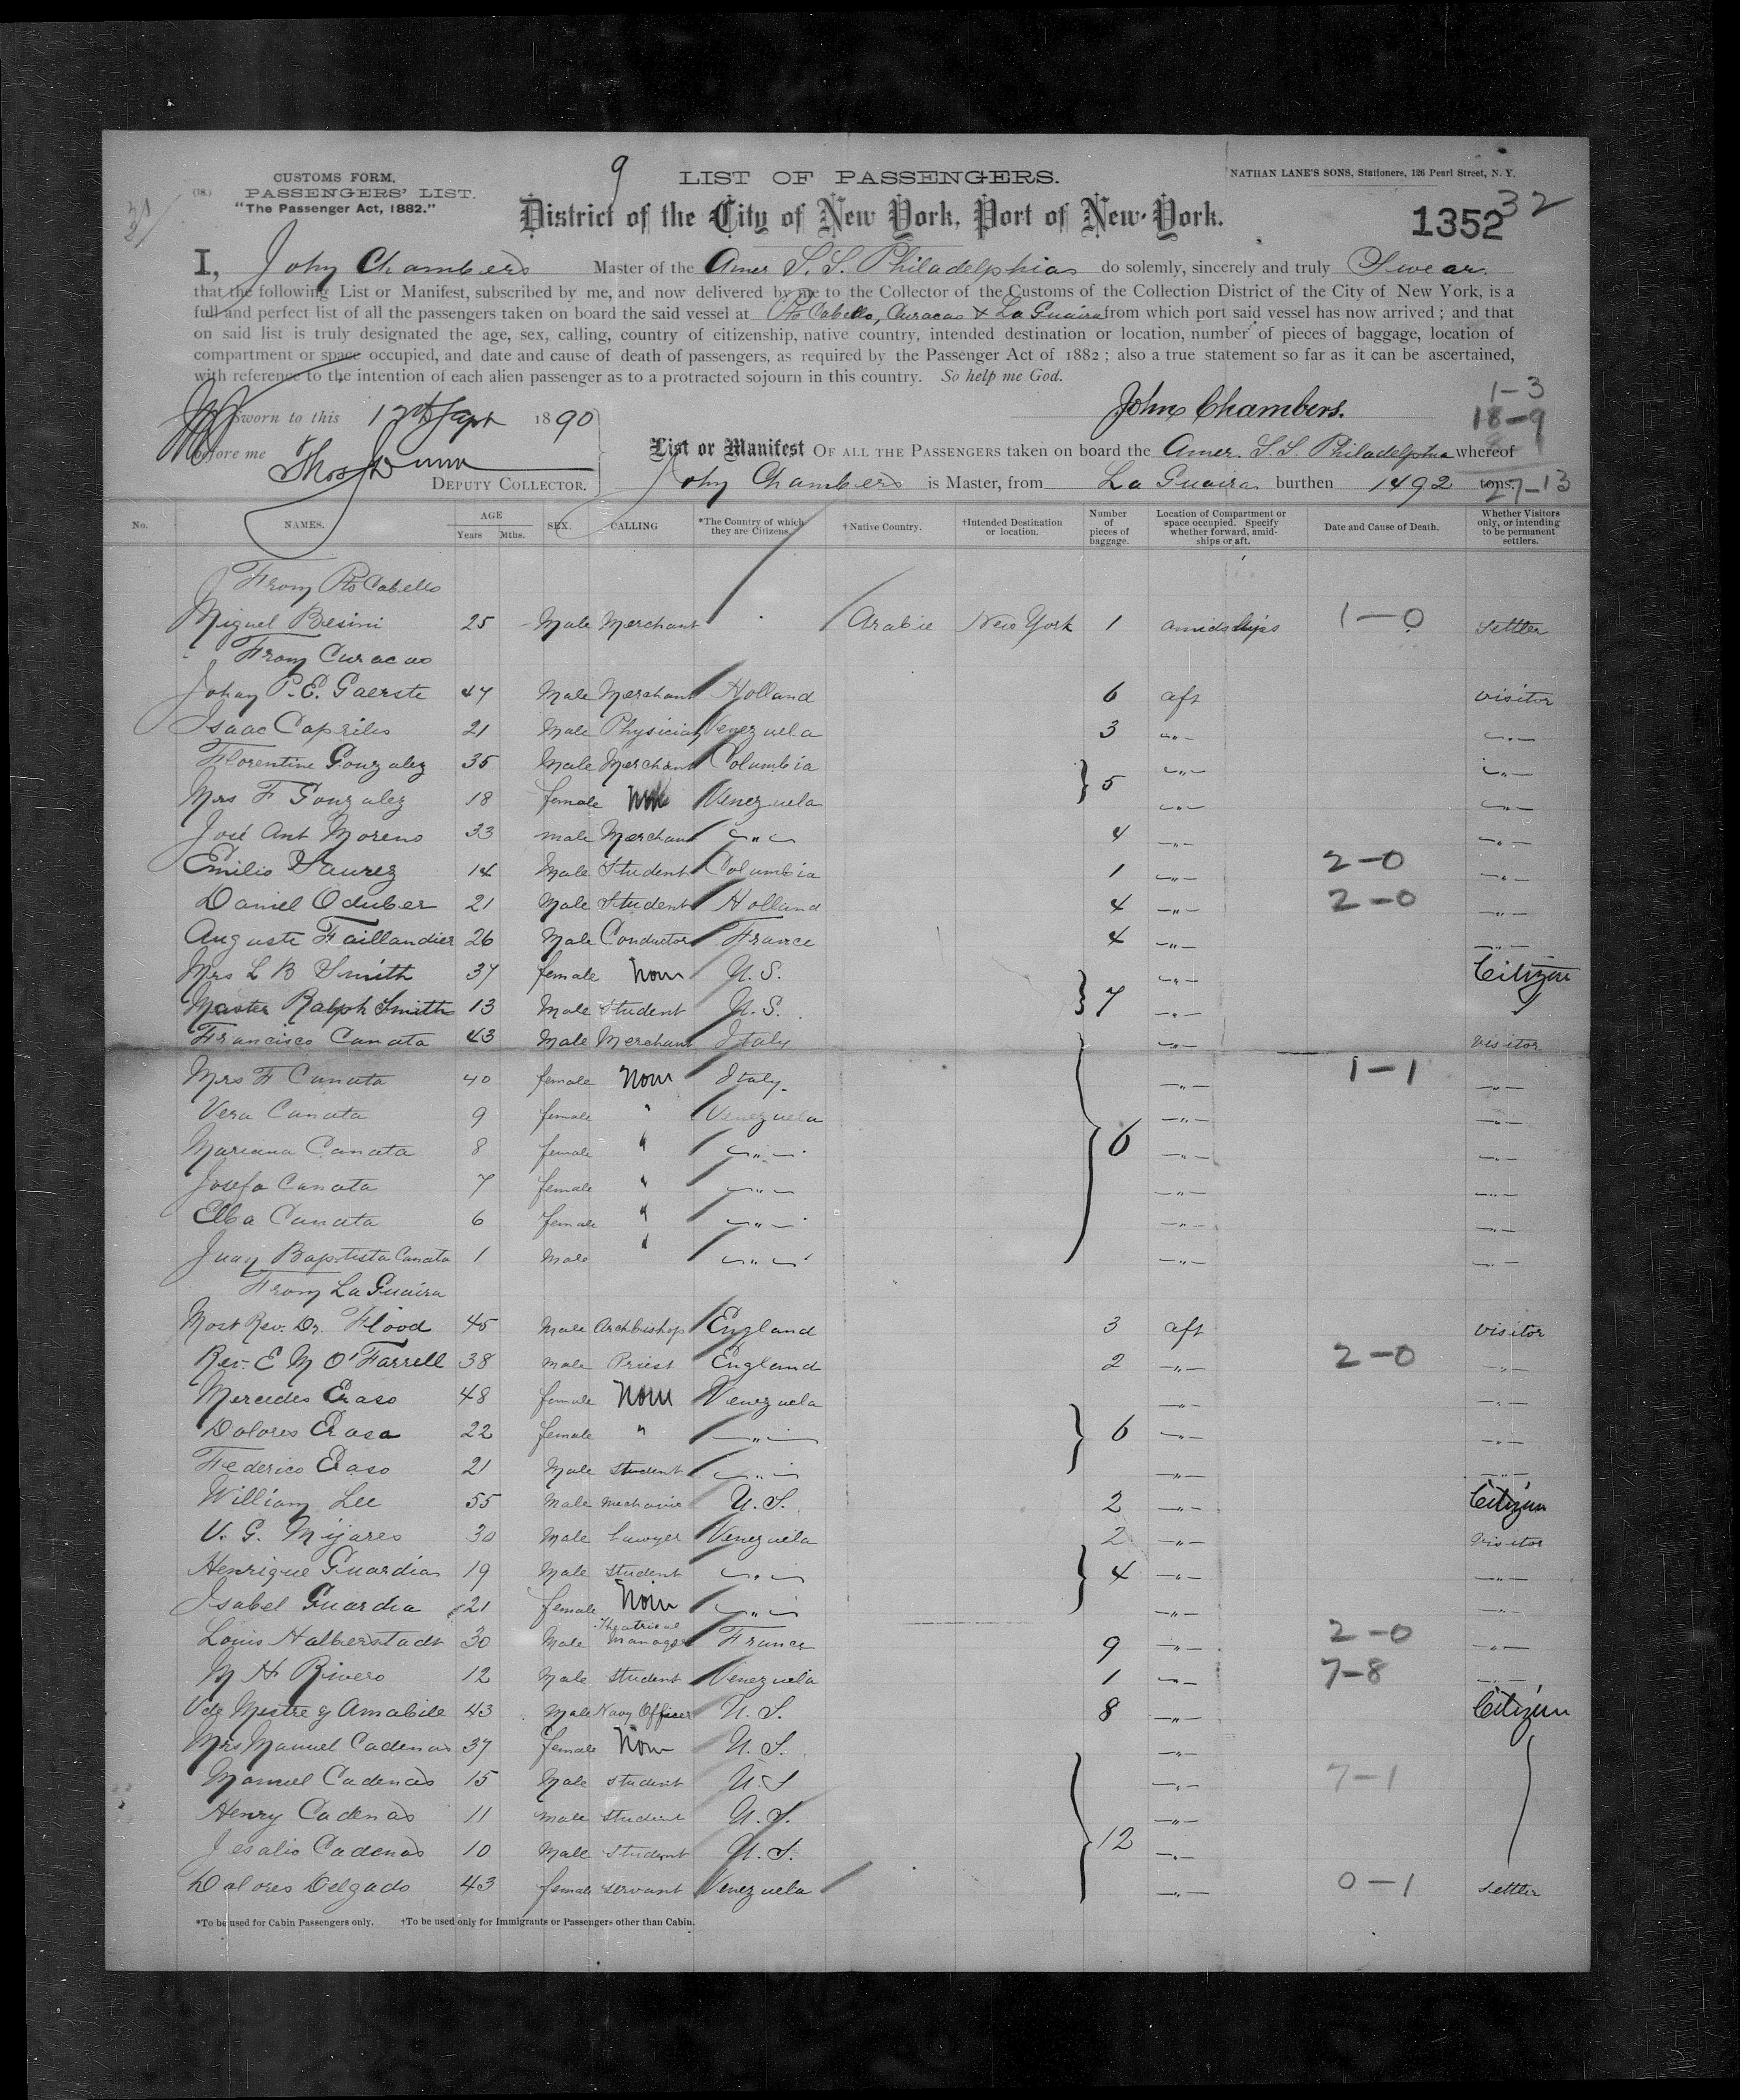 9
CUSTOMS FORM.
(18.) PASSENGERS' LIST.
"The Passenger Act, 1882."
LIST OF PASSENGERS.
NATHAN LANE'S SONS, Stationers, 126 Pearl Street, N. Y.
District of the City of New York, Port of New-York.
1352 32
I, John Chambers Master of the Amer S. S. Philadelphia do solemnly, sincerely and truly Swear
that the following List or Manifest, subscribed by me, and now delivered by me to the Collector of the Customs of the Collection District of the City of New York, is a
full and perfect list of all the passengers taken on board the said vessel at Pto Cabello, Curacao & La Guaira from which port said vessel has now arrived; and that
on said list is truly designated the age, sex, calling, country of citizenship, native country, intended destination or location, number of pieces of baggage, location of
compartment or space occupied, and date and cause of death of passengers, as required by the Passenger Act of 1882; also a true statement so far as it can be ascertained,
with reference to the intention of each alien passenger as to a protracted sojourn in this country. So help me God.
1-3
John Chambers. 18-9
Sworn to this 12th Sept 1890
before me Thos Dunn
DEPUTY COLLECTOR.
List or Manifest OF ALL THE PASSENGERS taken on board the Amer. S.S. Philadelphia whereof
John Chambers is Master, from La Guaira burthen 1492 tons. 27-13
No. NAMES. AGE Years Mths. SEX. CALLING *The Country of which they are Citizens. †Native Country. †Intended Destination or location. Number of pieces of baggage. Location of Compartment or space occupied. Specify whether forward, amidships or aft. Date and Cause of Death. Whether Visitors only, or intending to be permanent settlers.
From Pto Cabello
Miguel Besini 25 Male Merchant Arabie New York 1 amidships 1-0 Settler
From Curacao
Johan P. E. Gaerste 47 Male Merchant Holland 6 aft visitor
Isaac Capriles 21 Male Physician Venezuela 3 -"- -"-
Florentine Gonzalez 35 Male Merchant Columbia -"- -"-
Mrs F Gonzalez 18 female None Venezuela } 5 -"- -"-
José Ant Moreno 33 male Merchant -"- 4 -"- -"-
Emilio Yaurez 14 Male Student Columbia 1 -"- 2-0 -"-
Daniel Oduber 21 Male Student Holland 4 -"- 2-0 -"-
Auguste Taillandier 26 Male Conductor France 4 -"- -"-
Mrs L B Smith 37 female None U. S. -"- Citizen
Master Ralph Smith 13 Male Student U. S. } 7 -"- "
Francisco Canata 43 Male Merchant Italy -"- visitor
Mrs F Canata 40 female None Italy -"- 1-1 -"-
Vera Canata 9 female " Venezuela -"- -"-
Mariana Canata 8 female " -"- } 6 -"- -"-
Josefa Canata 7 female " -"- -"- -"-
Elba Canata 6 female " -"- -"- -"-
Juan Baptista Canata 1 Male " -"- -"- -"-
From La Guaira
Most Rev. Dr. Flood 45 Male Archbishop England 3 aft visitor
Rev. E M O'Farrell 38 male Priest England 2 -"- 2-0 -"-
Mercedes Eraso 48 female None Venezuela -"- -"-
Dolores Eraso 22 female " -"- } 6 -"- -"-
Federico Eraso 21 Male student -"- -"- -"-
William Lee 55 Male mechanic U. S. 2 -"- Citizen
V. G. Mijares 30 Male Lawyer Venezuela 2 -"- Visitor
Henrique Guardia 19 Male student -"- } 4 -"- -"-
Isabel Guardia 21 female None -"- -"- -"-
Louis Halberstadt 30 Male Theatrical Manager France 9 -"- 2-0 -"-
M H Rivero 12 Male student Venezuela 1 -"- 7-8 -"-
Vde Mestre y Amabile 43 Male Navy Officer U. S. 8 -"- Citizen
Mrs Manuel Cadenas 37 female None U. S. -"-
Manuel Cadenas 15 Male student U. S -"- 7-1
Henry Cadenas 11 male student U. S. -"-
Jesalio Cadenas 10 Male student U. S. } 12 -"-
Dolores Delgado 43 female servant Venezuela -"- 0-1 Settler
*To be used for Cabin Passengers only. †To be used only for Immigrants or Passengers other than Cabin.